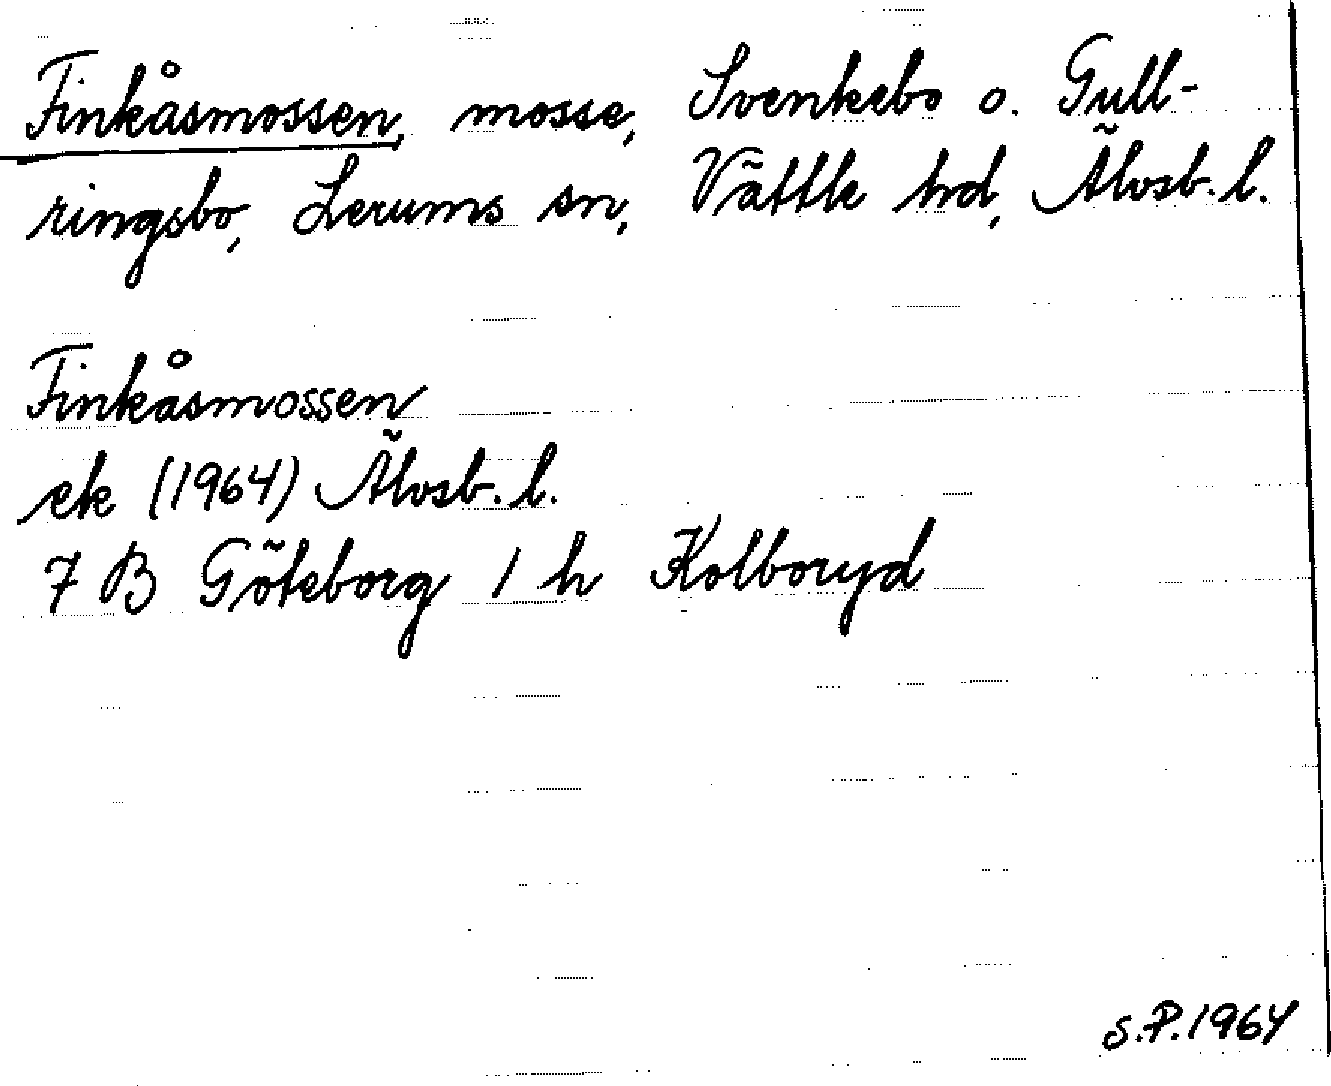 Finkåsmossen, mosse, Svenkebo o. Gull-
ringsbo, Lerums sn, Vättle hd, Älvsb. l.
Finkåsmossen
ek (1964) Älvsb. l.
7 B Göteborg 1 h Kolboryd
S.P. 1964